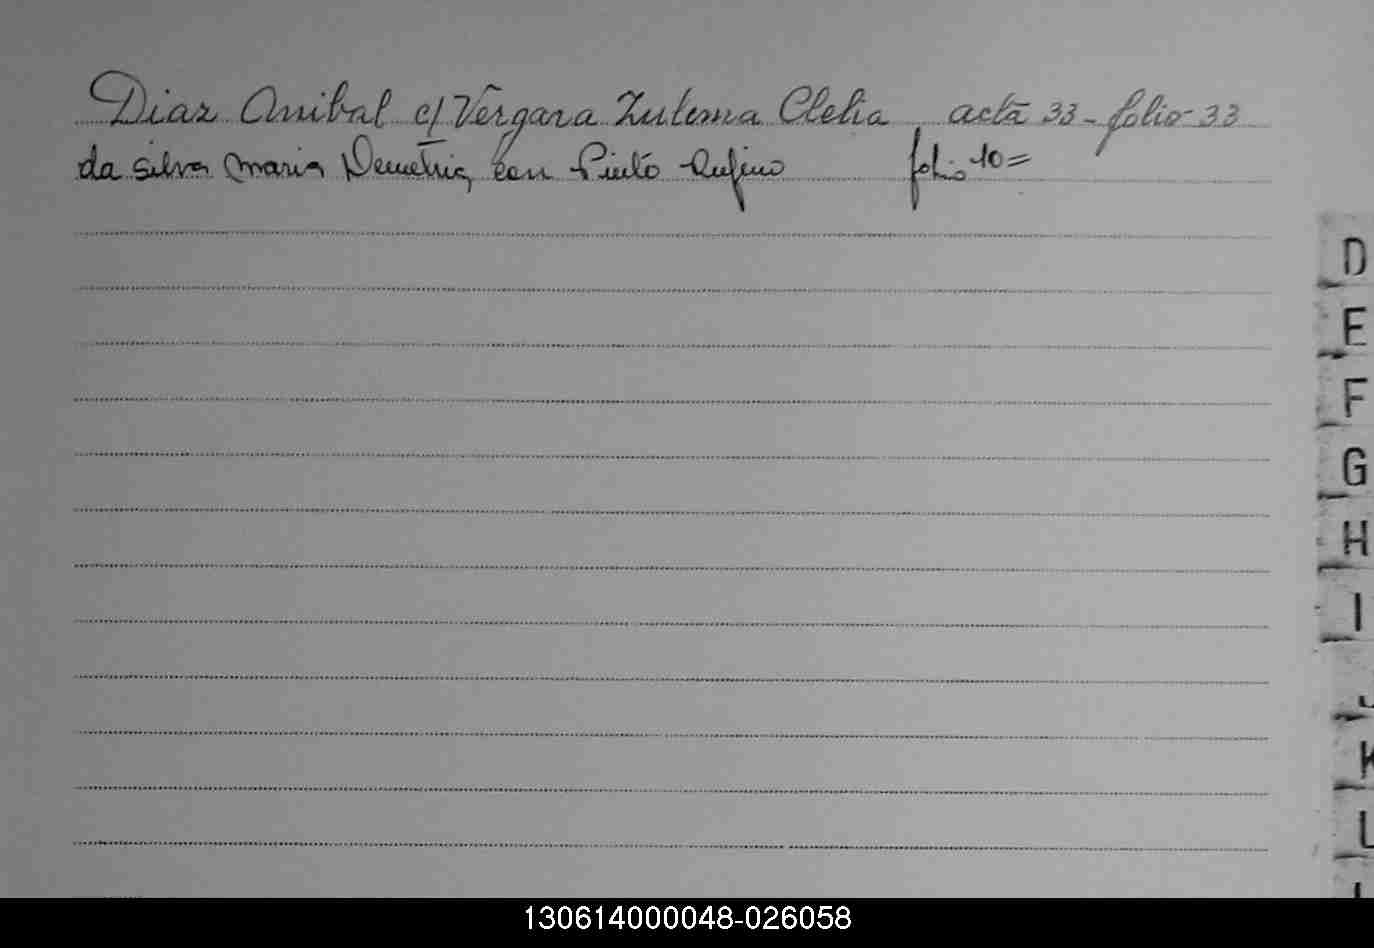 Diaz Anibal c/ Vergara Zulema Clelia acta 33 - folio 33
da silva maria Demetria con Pinto Rufino folio 10=
D
E
F
G
H
I
J
K
L
130614000048-026058